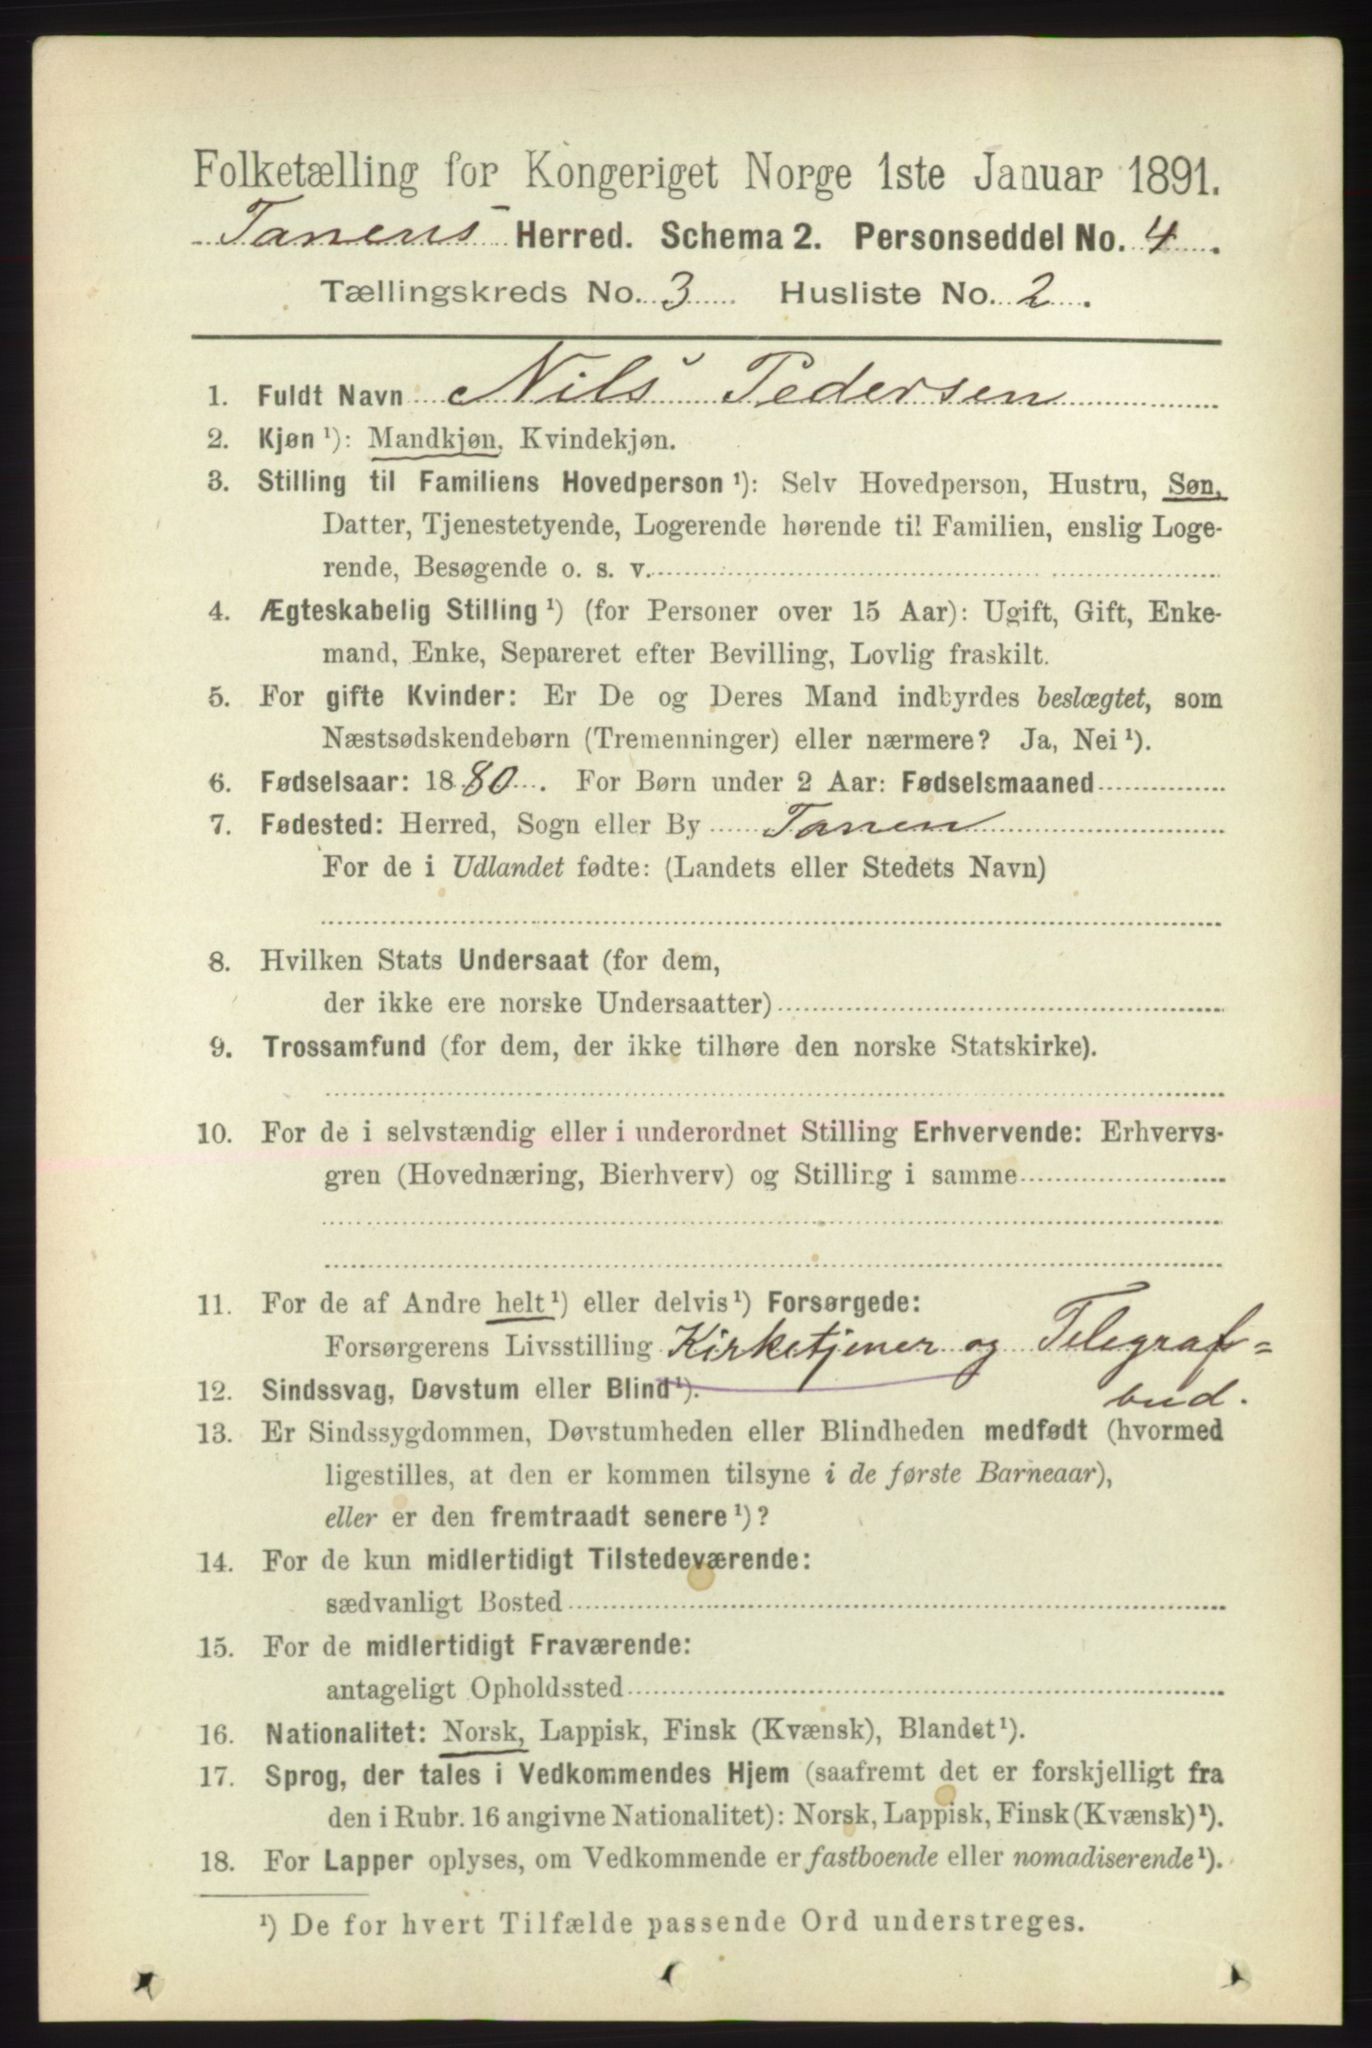 Folketælling for Kongeriget Norge 1ste Januar 1891.
Tanens Herred. Schema 2. Personseddel No. 4.
Tællingskreds No. 3 Husliste No. 2.
1. Fuldt Navn Nils Pedersen
2. Kjøn ¹): Mandkjøn, Kvindekjøn.
3. Stilling til Familiens Hovedperson ¹): Selv Hovedperson, Hustru, Søn,
Datter, Tjenestetyende, Logerende hørende til Familien, enslig Loge-
rende, Besøgende o. s. v.
4. Ægteskabelig Stilling ¹) (for Personer over 15 Aar): Ugift, Gift, Enke-
mand, Enke, Separeret efter Bevilling, Lovlig fraskilt.
5. For gifte Kvinder: Er De og Deres Mand indbyrdes beslægtet, som
Næstsødskendebørn (Tremenninger) eller nærmere? Ja, Nei ¹).
6. Fødselsaar: 1880. For Børn under 2 Aar: Fødselsmaaned
7. Fødested: Herred, Sogn eller By Tanen
For de i Udlandet fødte: (Landets eller Stedets Navn)
8. Hvilken Stats Undersaat (for dem,
der ikke ere norske Undersaatter)
9. Trossamfund (for dem, der ikke tilhøre den norske Statskirke).
10. For de i selvstændig eller i underordnet Stilling Erhvervende: Erhvervs-
gren (Hovednæring, Bierhverv) og Stilling i samme
11. For de af Andre helt ¹) eller delvis ¹) Forsørgede:
Forsørgerens Livsstilling Kirketjener og Telegraf=
bud.
12. Sindssvag, Døvstum eller Blind ¹).
13. Er Sindssygdommen, Døvstumheden eller Blindheden medfødt (hvormed
ligestilles, at den er kommen tilsyne i de første Barneaar),
eller er den fremtraadt senere ¹)?
14. For de kun midlertidigt Tilstedeværende:
sædvanligt Bosted
15. For de midlertidigt Fraværende:
antageligt Opholdssted
16. Nationalitet: Norsk, Lappisk, Finsk (Kvænsk), Blandet ¹).
17. Sprog, der tales i Vedkommendes Hjem (saafremt det er forskjelligt fra
den i Rubr. 16 angivne Nationalitet): Norsk, Lappisk, Finsk (Kvænsk) ¹).
18. For Lapper oplyses, om Vedkommende er fastboende eller nomadiserende ¹).
¹) De for hvert Tilfælde passende Ord understreges.